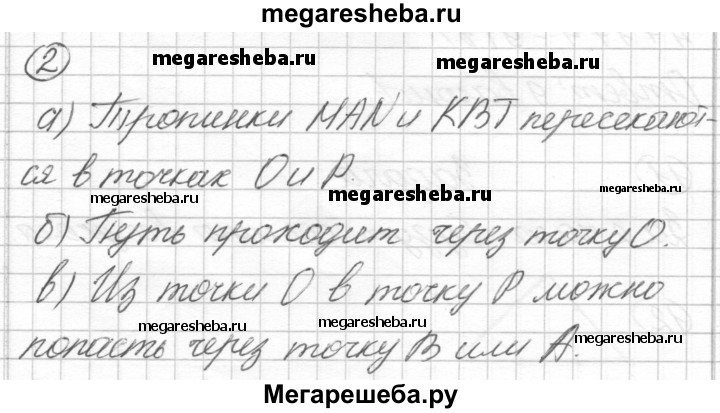 megaresheba.ru
2 megaresheba.ru megaresheba.ru
а) Тропинки MAN и КВТ пересекают-
ся в точках О и Р.
megaresheba.ru megaresheba.ru megaresheba.ru
б) Путь проходит через точку О.
в) Из точки О в точку Р можно
megaresheba.ru megaresheba.ru megaresheba.ru
попасть через точку В или А.
Мегарешеба.ру